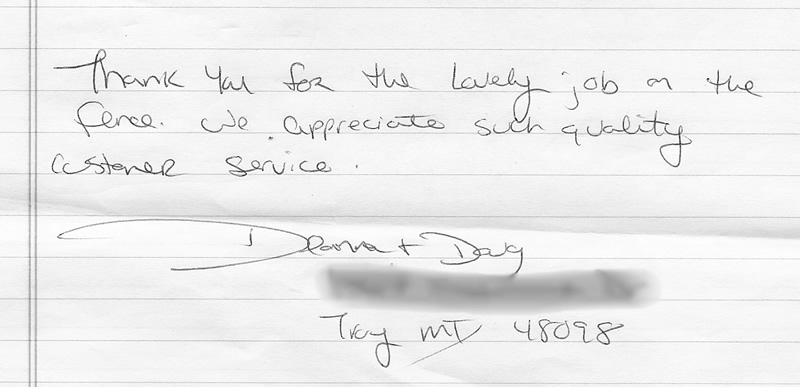 Thank you for the lovely job on the
fence. We appreciate such quality
customer service.
Deanna + Doug
Troy MI 48098